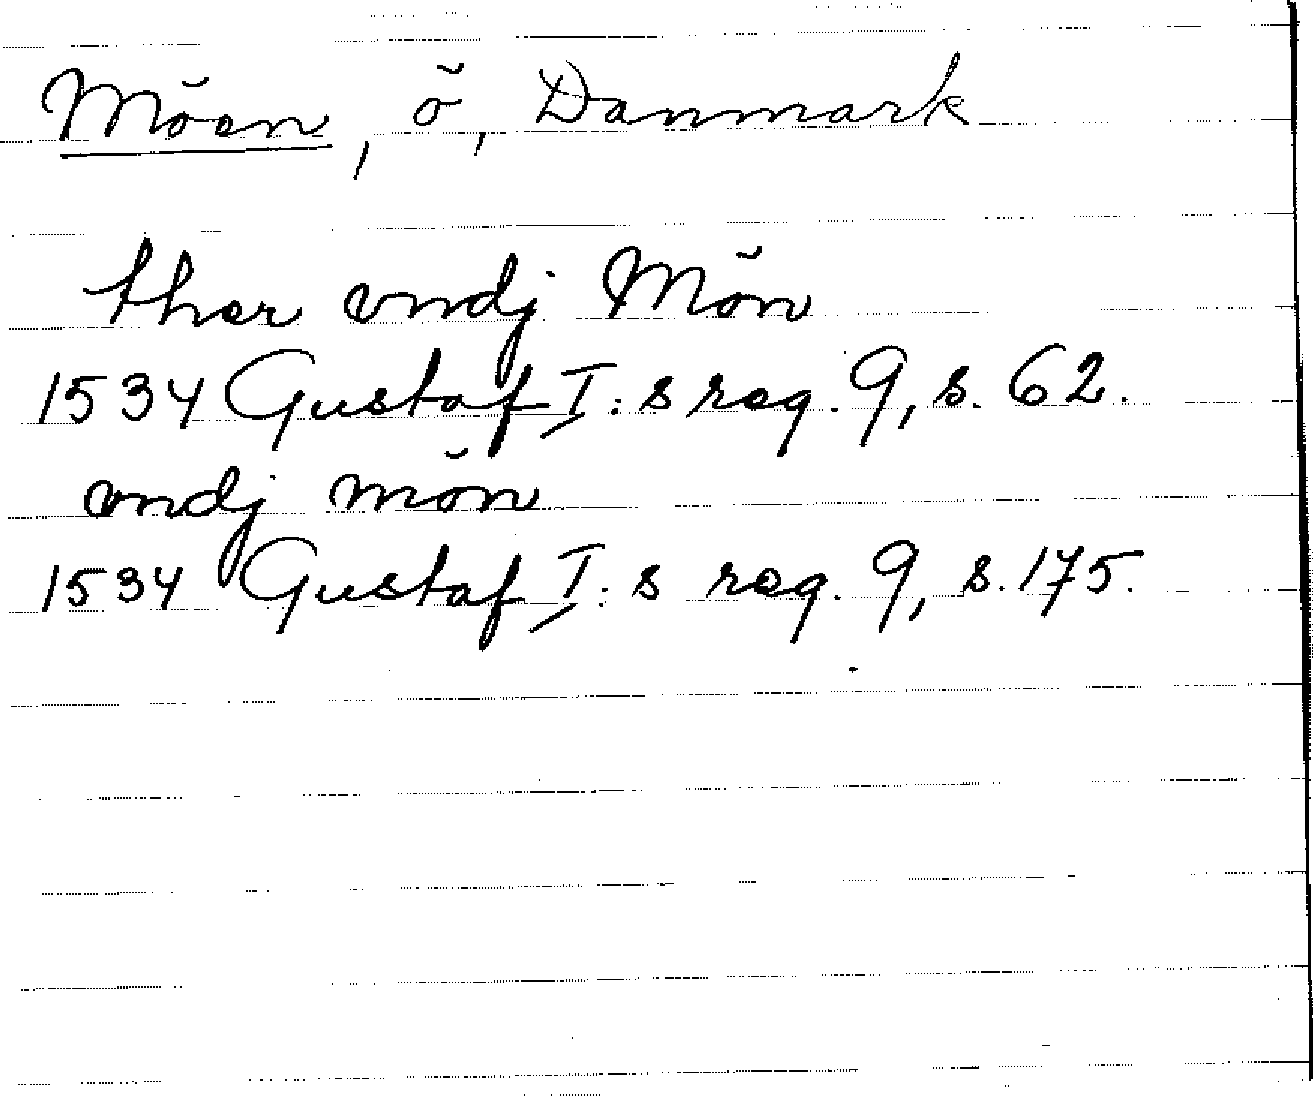 Möen, ö, Danmark
ther vndj Mön
1534 Gustaf I:s reg. 9, s. 62.
vndj mön
1534 Gustaf I:s reg. 9, s. 175.